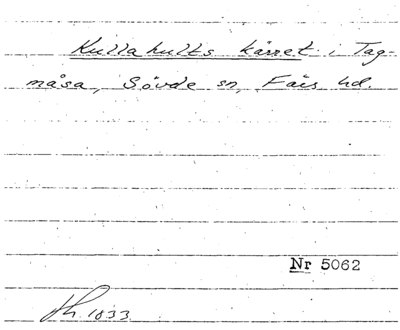 Kullahults kärret i Tag-
måsa, Sövde sn, Färs hd.
Nr 5062
1833